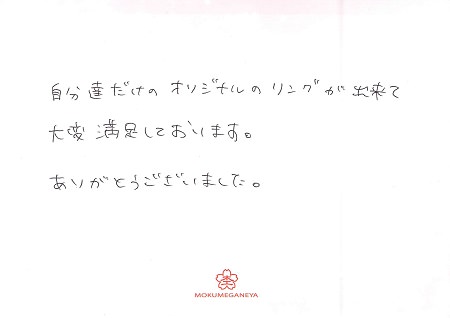 自分達だけの オリジナルの リングが 出来て
大変 満足しております。
ありがとうございました。
MOKUMEGANEYA